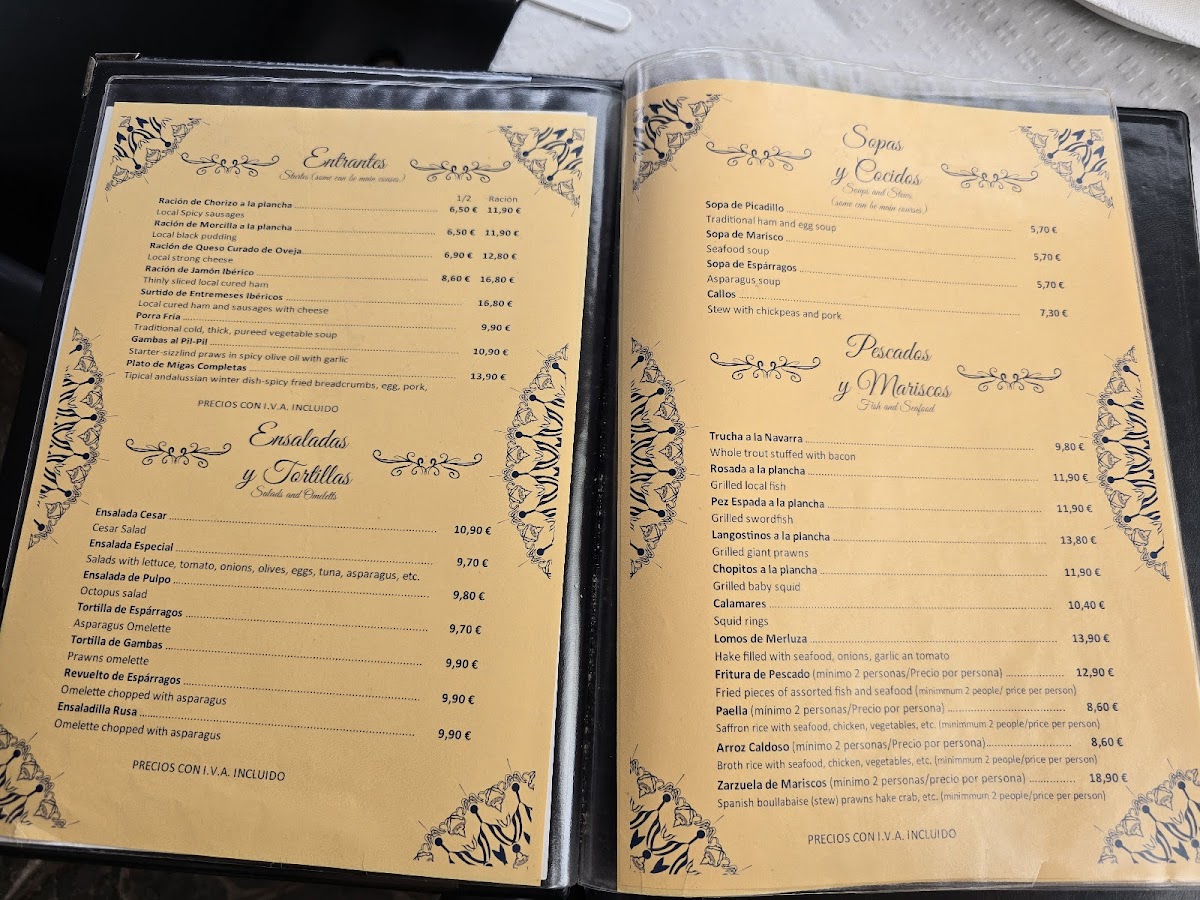 Entrantes
Starters (some can be main courses)
1/2 Ración
Ración de Chorizo a la plancha 6,50 € 11,90 €
Local Spicy sausages
Ración de Morcilla a la plancha 6,50 € 11,90 €
Local black pudding
Ración de Queso Curado de Oveja 6,90 € 12,80 €
Local strong cheese
Ración de Jamón Ibérico 8,60 € 16,80 €
Thinly sliced local cured ham
Surtido de Entremeses Ibéricos 16,80 €
Local cured ham and sausages with cheese
Porra Fría 9,90 €
Traditional cold, thick, pureed vegetable soup
Gambas al Pil-Pil 10,90 €
Starter-sizzlind praws in spicy olive oil with garlic
Plato de Migas Completas 13,90 €
Tipical andalussian winter dish-spicy fried breadcrumbs, egg, pork,
PRECIOS CON I.V.A. INCLUIDO
Ensaladas
y Tortillas
Salads and Omeletts
Ensalada Cesar 10,90 €
Cesar Salad
Ensalada Especial 9,70 €
Salads with lettuce, tomato, onions, olives, eggs, tuna, asparagus, etc.
Ensalada de Pulpo 9,80 €
Octopus salad
Tortilla de Espárragos 9,70 €
Asparagus Omelette
Tortilla de Gambas 9,90 €
Prawns omelette
Revuelto de Espárragos 9,90 €
Omelette chopped with asparagus
Ensaladilla Rusa 9,90 €
Omelette chopped with asparagus
PRECIOS CON I.V.A. INCLUIDO
Sopas
y Cocidos
Soups and Stews
(some can be main courses)
Sopa de Picadillo 5,70 €
Traditional ham and egg soup
Sopa de Marisco 5,70 €
Seafood soup
Sopa de Espárragos 5,70 €
Asparagus soup
Callos 7,30 €
Stew with chickpeas and pork
Pescados
y Mariscos
Fish and Seafood
Trucha a la Navarra 9,80 €
Whole trout stuffed with bacon
Rosada a la plancha 11,90 €
Grilled local fish
Pez Espada a la plancha 11,90 €
Grilled swordfish
Langostinos a la plancha 13,80 €
Grilled giant prawns
Chopitos a la plancha 11,90 €
Grilled baby squid
Calamares 10,40 €
Squid rings
Lomos de Merluza 13,90 €
Hake filled with seafood, onions, garlic an tomato
Fritura de Pescado (mínimo 2 personas/Precio por persona) 12,90 €
Fried pieces of assorted fish and seafood (minimmum 2 people/ price per person)
Paella (mínimo 2 personas/Precio por persona) 8,60 €
Saffron rice with seafood, chicken, vegetables, etc. (minimmum 2 people/price per person)
Arroz Caldoso (mínimo 2 personas/Precio por persona) 8,60 €
Broth rice with seafood, chicken, vegetables, etc. (minimmum 2 people/price per person)
Zarzuela de Mariscos (mínimo 2 personas/precio por persona) 18,90 €
Spanish boullabaise (stew) prawns hake crab, etc. (minimmum 2 people/price per person)
PRECIOS CON I.V.A. INCLUIDO